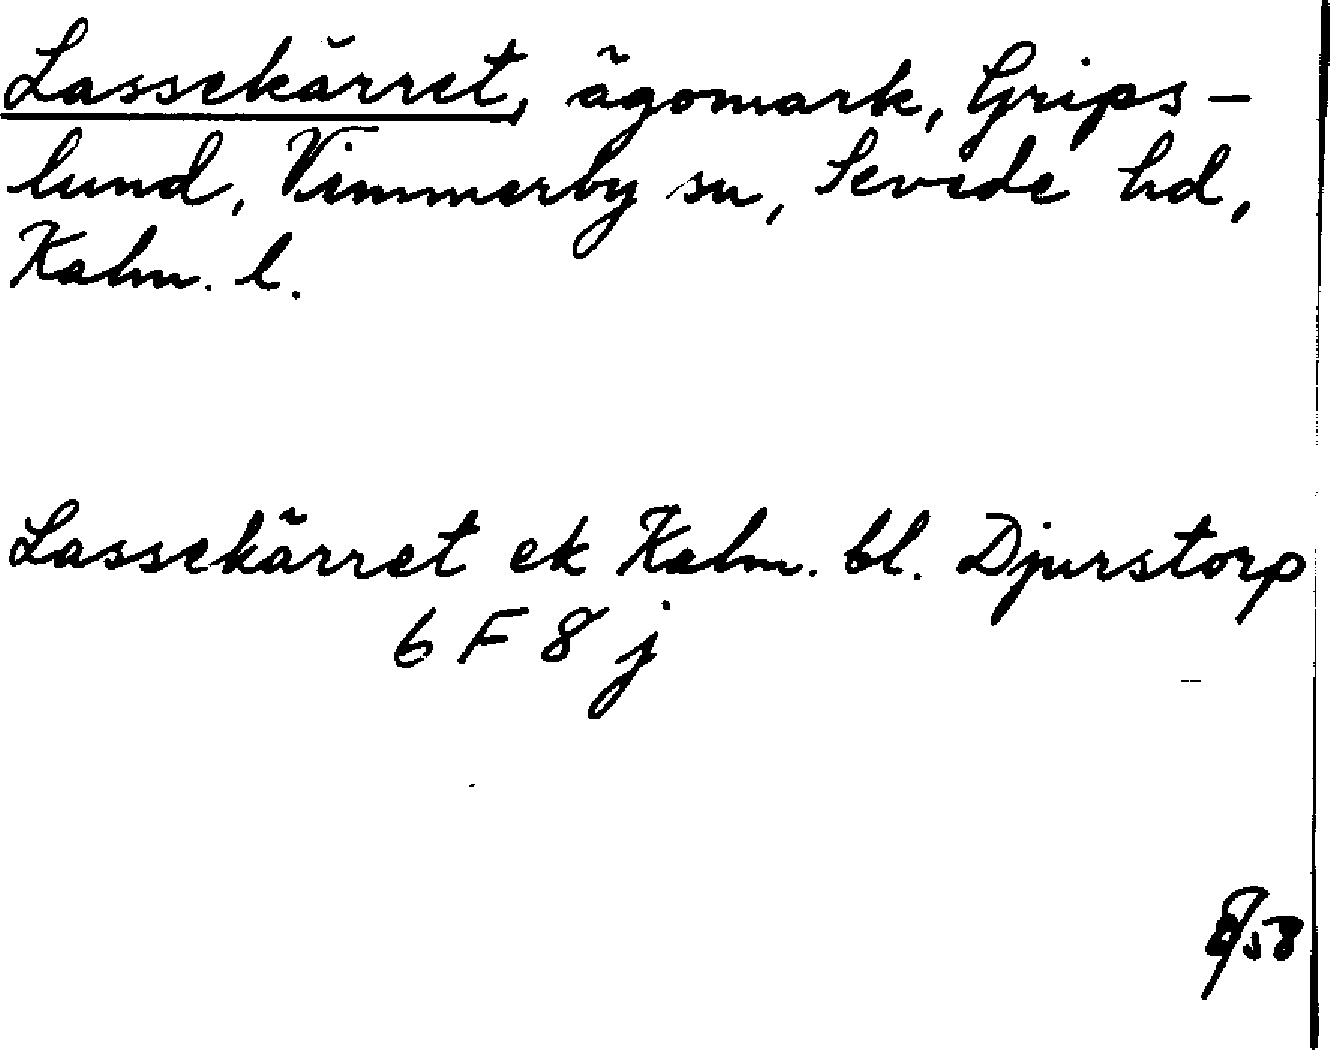 Lassekärret, ägomark, Grips-
lund, Vimmerby sn, Sevede hd,
Kalm. l.
Lassekärret ek Kalm. bl. Djurstorp
6 F 8 j